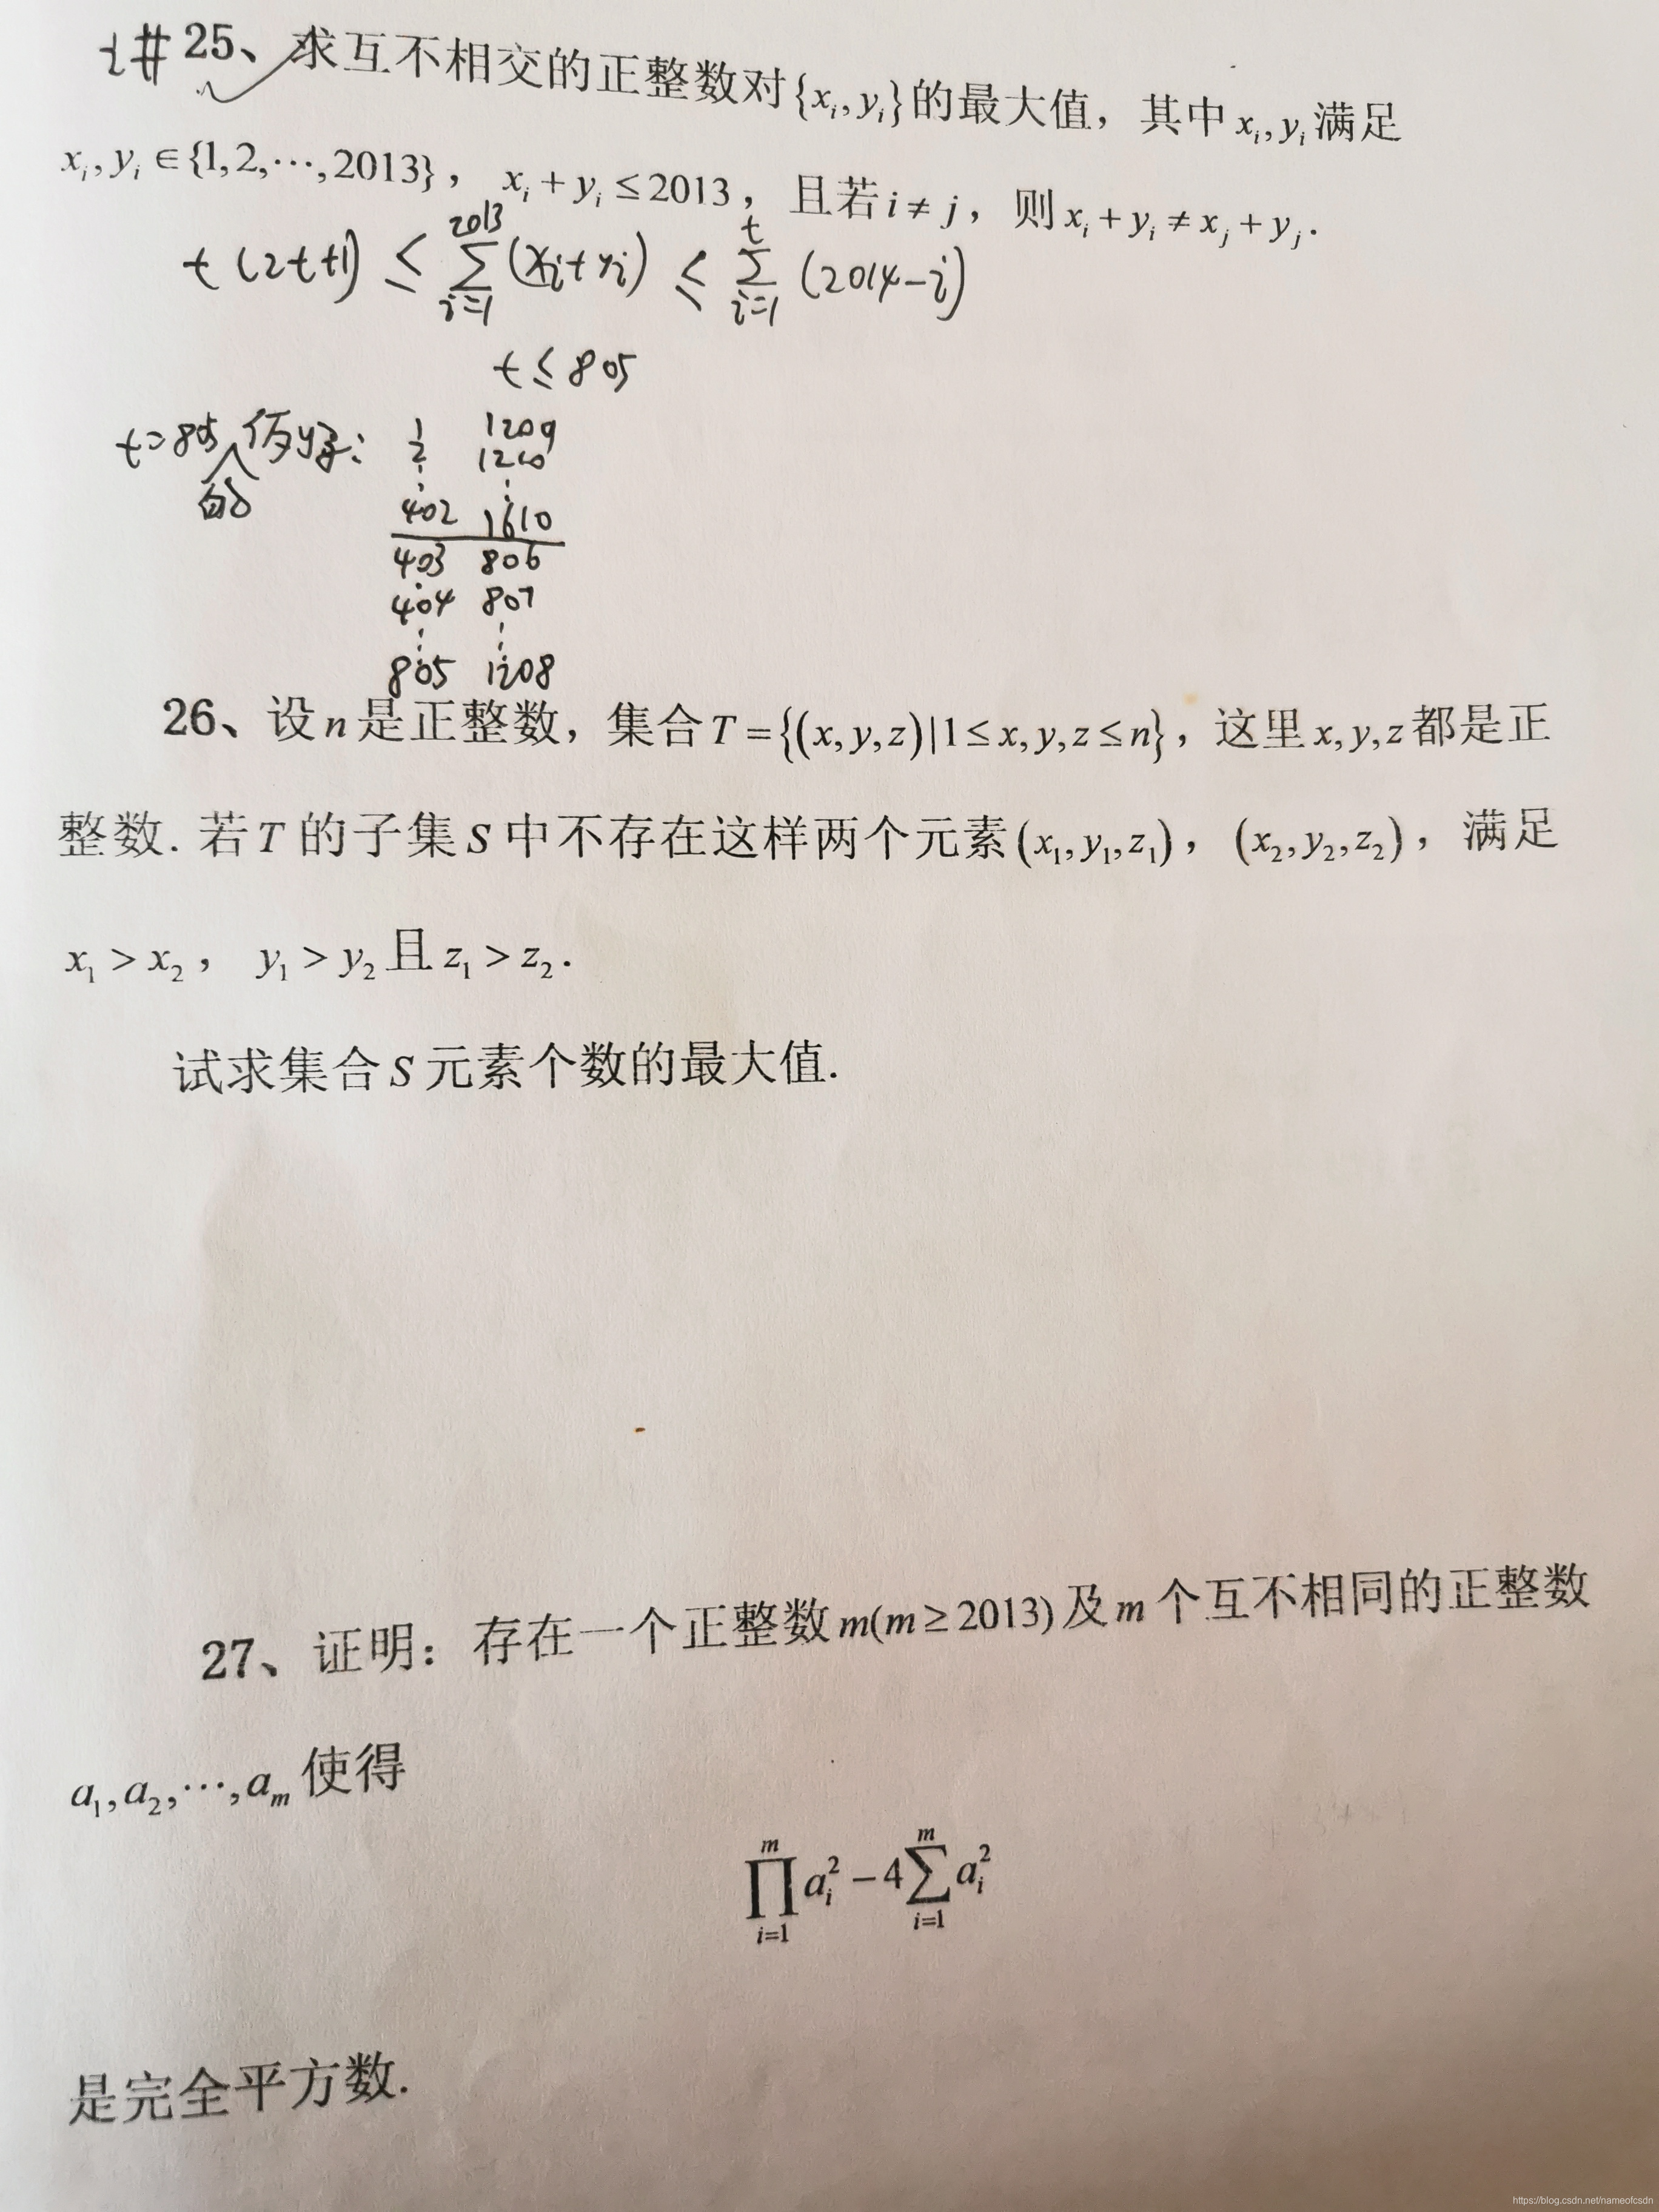 i# 25、求互不相交的正整数对{xᵢ,yᵢ}的最大值，其中xᵢ,yᵢ满足
xᵢ,yᵢ∈{1,2,⋯,2013}，xᵢ+yᵢ≤2013，且若i≠j，则xᵢ+yᵢ≠xⱼ+yⱼ.
t(2t+1) ≤ ∑_{i=1}^{2013}(xᵢ+yᵢ) ≤ ∑_{i=1}^{t}(2014-i)
t≤805
t=805的例子:
1 1209
2 1210
⋮ ⋮
402 1610
403 806
404 807
⋮ ⋮
805 1208
26、设n是正整数，集合T={(x,y,z)|1≤x,y,z≤n}，这里x,y,z都是正
整数. 若T的子集S中不存在这样两个元素(x₁,y₁,z₁)，(x₂,y₂,z₂)，满足
x₁>x₂，y₁>y₂且z₁>z₂.
试求集合S元素个数的最大值.
27、证明：存在一个正整数m(m≥2013)及m个互不相同的正整数
a₁,a₂,⋯,aₘ使得
∏_{i=1}^{m}aᵢ²-4∑_{i=1}^{m}aᵢ²
是完全平方数.
https://blog.csdn.net/nameofcsdn